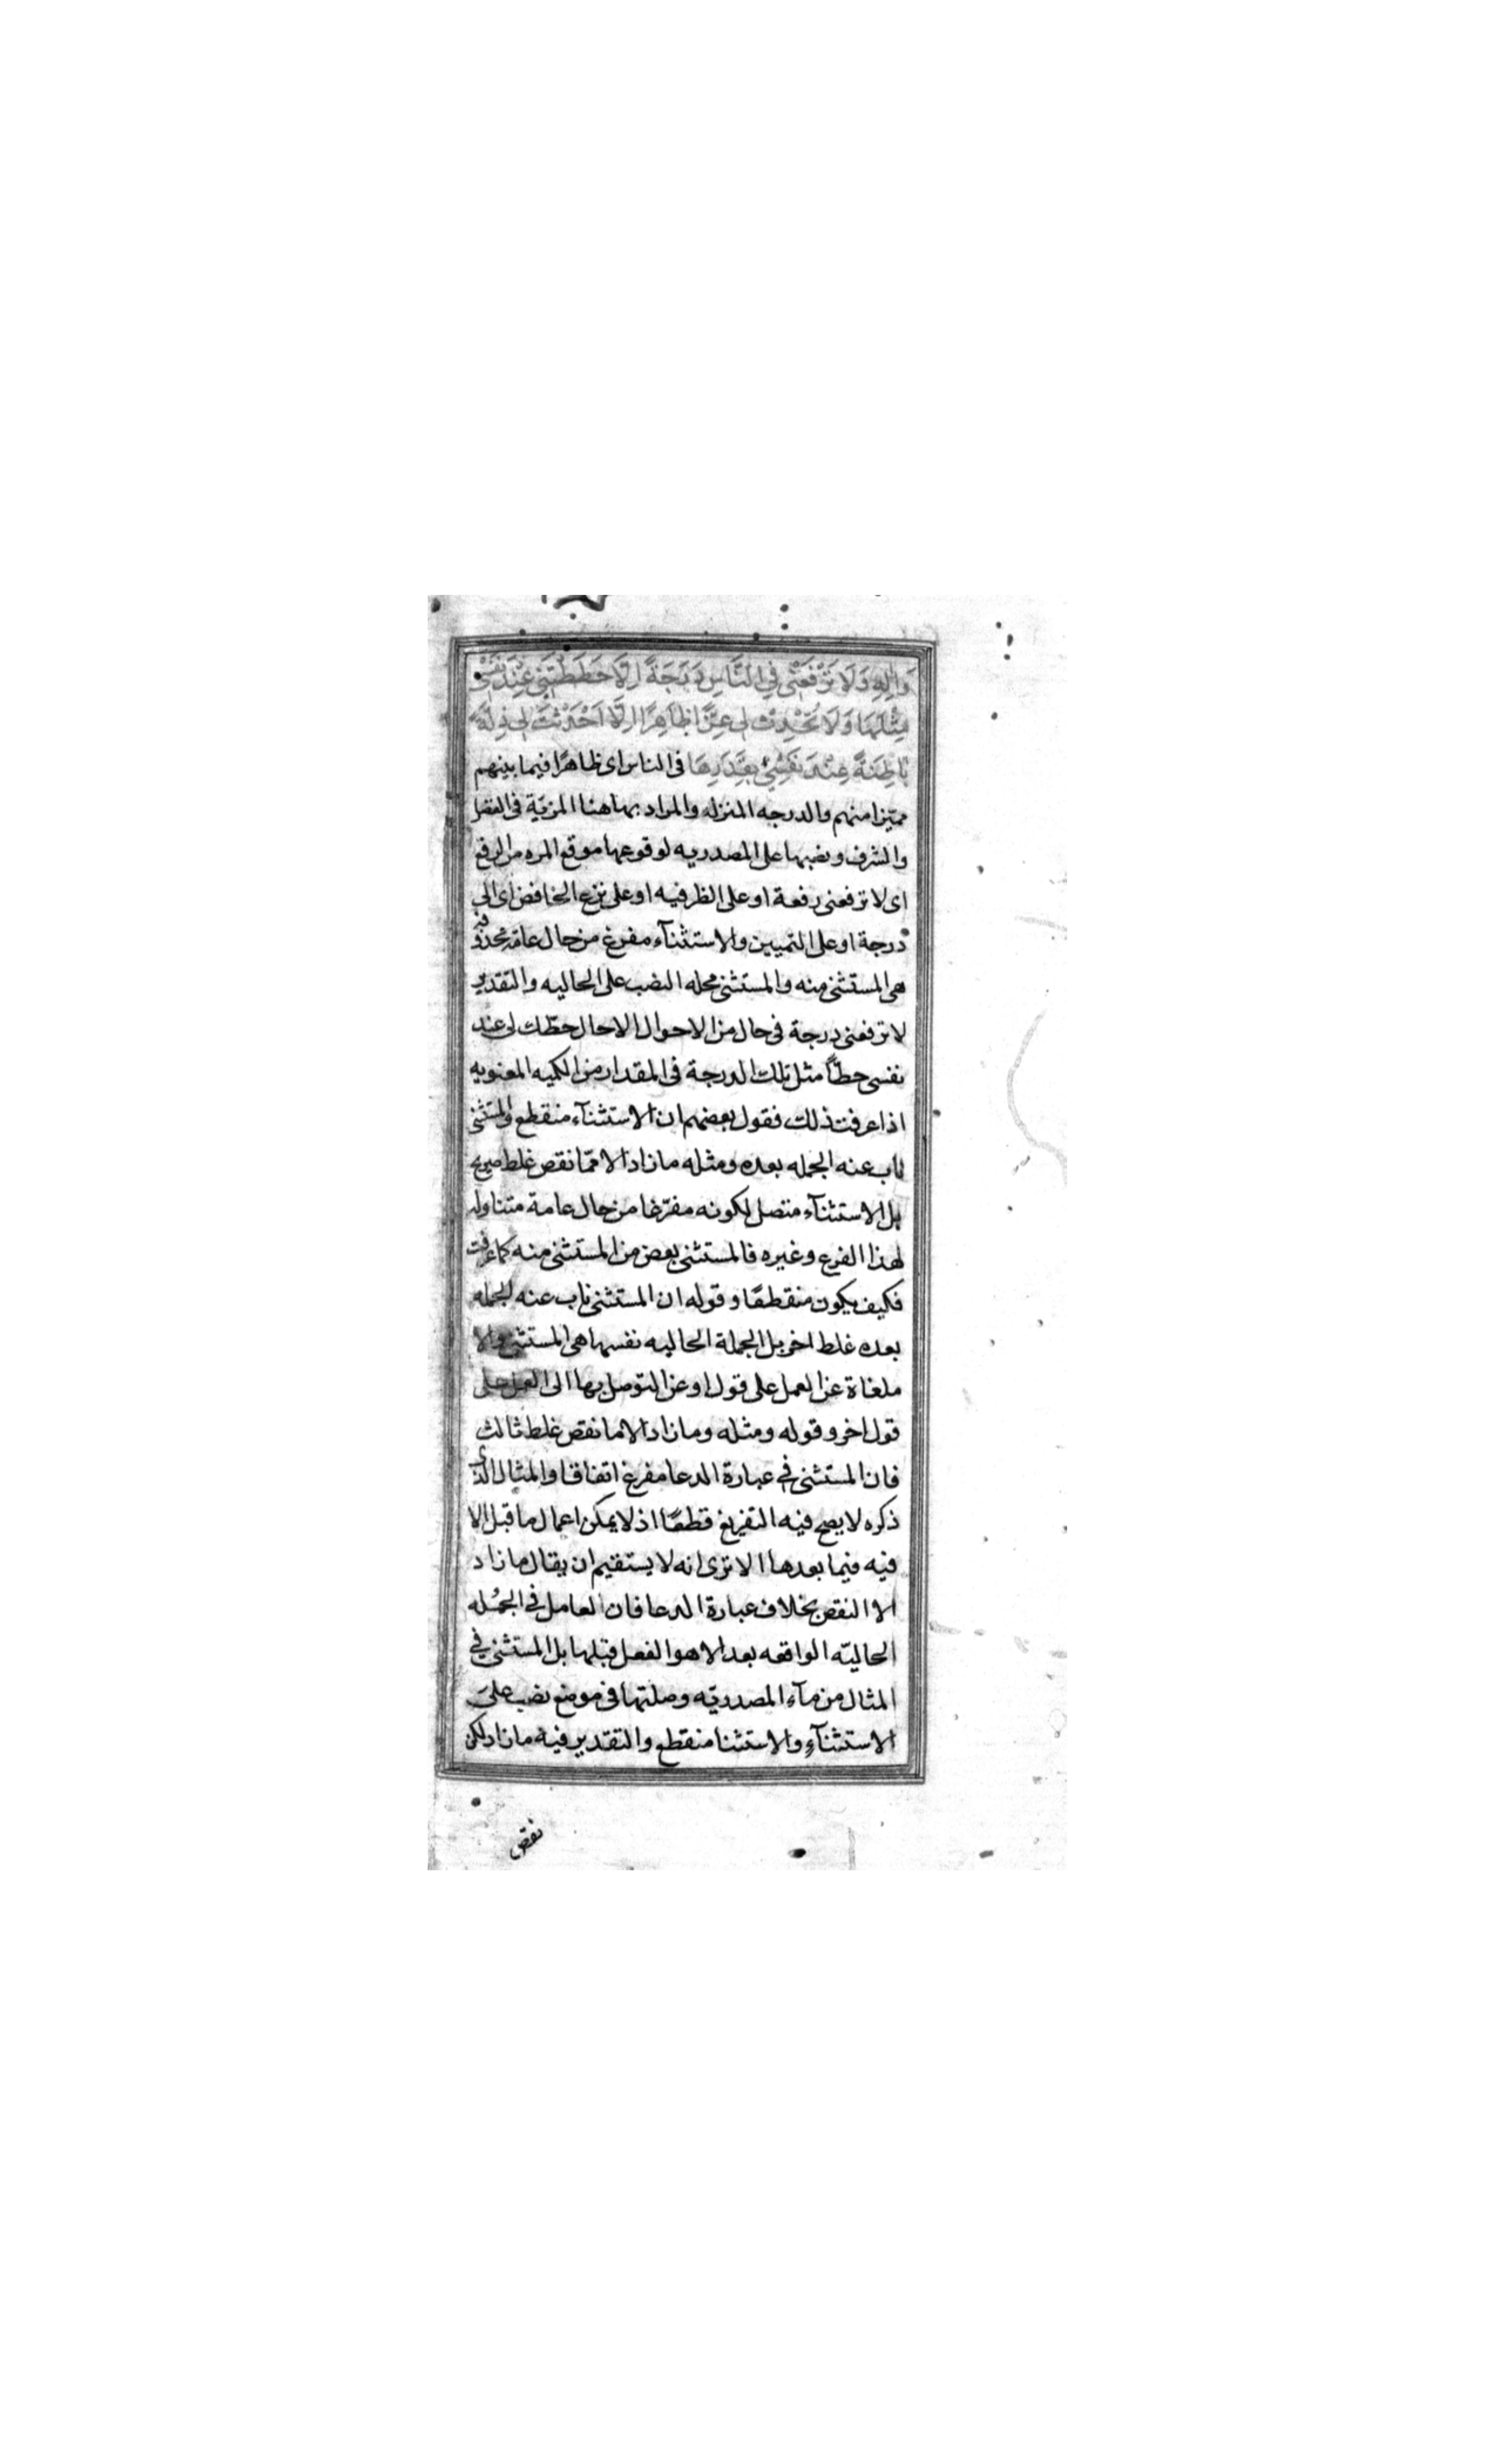 وَاٰلِهِ وَلَا تَرْفَعْنِى فِى النَّاسِ دَرَجَةً اِلَّا حَطَطْتَنِى عِنْدَ نَفْسِى
مِثْلَهَا وَلَا تُحْدِثْ لِى عِزًّا ظَاهِرًا اِلَّا اَحْدَثْتَ لِى ذِلَّةً
بَاطِنَةً عِنْدَ نَفْسِى بِقَدَرِهَا فى الناس اى ظاهرًا فيما بينهم
مميّزا منهم والدرجه المنزله والمراد بها هنا المزيّة فى الفضل
والشرف ونصبها على المصدريه لوقوعها موقع المره من الرفع
اى لا ترفعنى رفعة او على الظرفيه او على نزع الخافض اى الى
درجة او على التمييز والاستثنآء مفرغ من حال عامه محذوفه
هى المستثنى منه والمستثنى محله النصب على الحاليه والتقدير
لا ترفعنى درجة فى حال من الاحوال الا حال حطّك لى عند
نفسى حطّاً مثل تلك الدرجة فى المقدار من الكميه المعنويه
اذا عرفت ذلك فقول بعضهم ان الاستثنآء منقطع والمستثنى
ناب عنه الجمله بعده ومثله ما زاد الا ممّا نقص غلط صريح
بل الاستثنآء متصل لكونه مفرّغا من حال عامة متناوله
لهذا الفرع وغيره فالمستثنى بعض من المستثنى منه كما عرفت
فكيف يكون منقطعًا وقوله ان المستثنى ناب عنه الجمله
بعده غلط اخر بل الجملة الحاليه نفسها هى المستثنى والا
ملغاة عن العمل على قول او عن التوصل بها الى العمل على
قول اخر وقوله ومثله وما زاد الا ما نقص غلط ثالث
فان المستثنى فى عبارة الدعا مفرغ اتفاقا والمثال الذى
ذكره لا يصح فيه التفريغ قطعًا اذ لا يمكن اعمال ما قبل الا
فيه فيما بعدها الا ترى انه لا يستقيم ان يقال ما زاد
الا النقص بخلاف عبارة الدعا فان العامل فى الجمُله
الحاليّه الواقعه بعد الا هو الفعل قبلها بل المستثنى فى
المثال من مآء المصدريّه وصلتها فى موضع نصب على
الاستثنآءِ والاستثنا منقطع والتقدير فيه ما زاد لكن
نقص